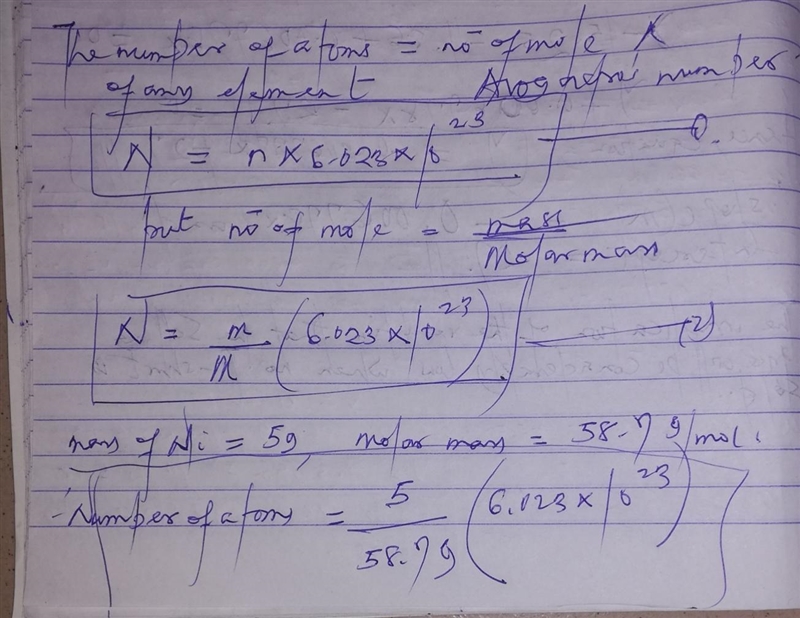 The number of atoms = no of mole X
of any element Avogadro's number
N = n X 6.023 X 10^23 ①
but no of mole = mass / Molar mass
N = m / M (6.023 X 10^23) (2)
mass of Ni = 5g, molar mass = 58.7 g/mol.
Number of atoms = 5 / 58.79 (6.023 X 10^23)